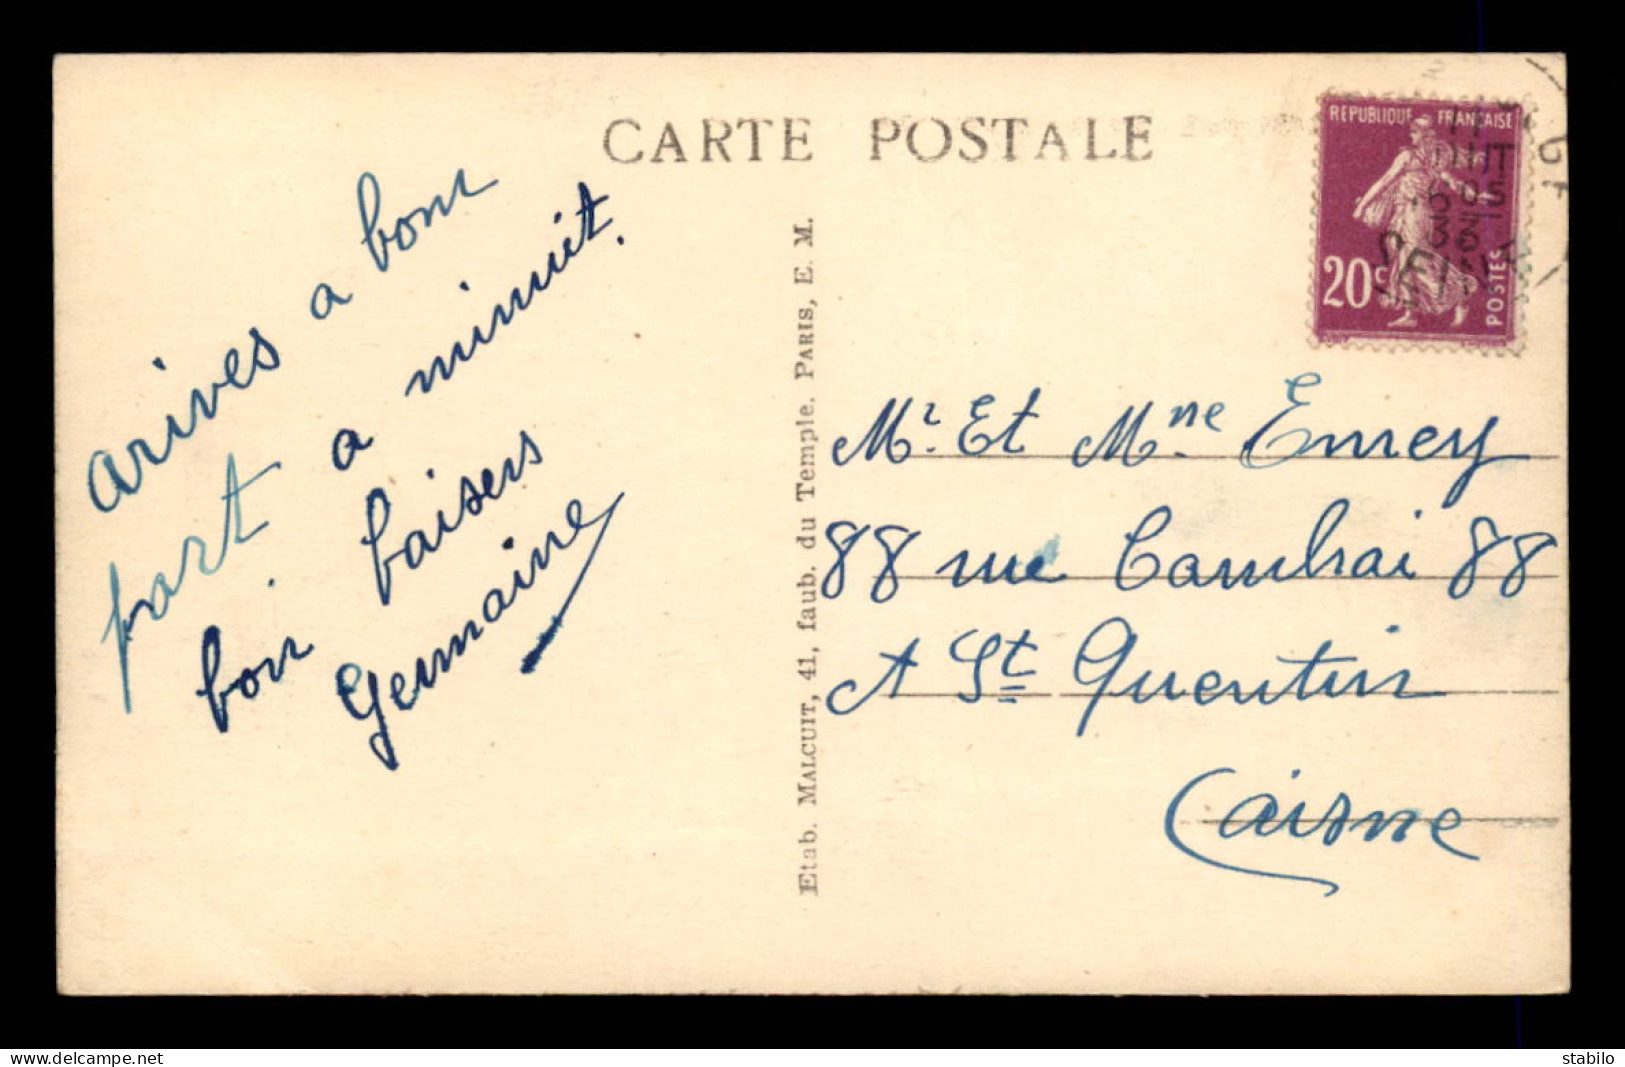 CARTE POSTALE
arives a bon
port a minuit.
bon baisers
Germaine
Etab. MALCUIT, 41, faub. du Temple. PARIS, E. M.
REPUBLIQUE FRANÇAISE
20c
POSTES
Mr. Et Mme Emrey
88 rue Cambrai 88
A St Quentin
(aisne
www.delcampe.net
stabilo